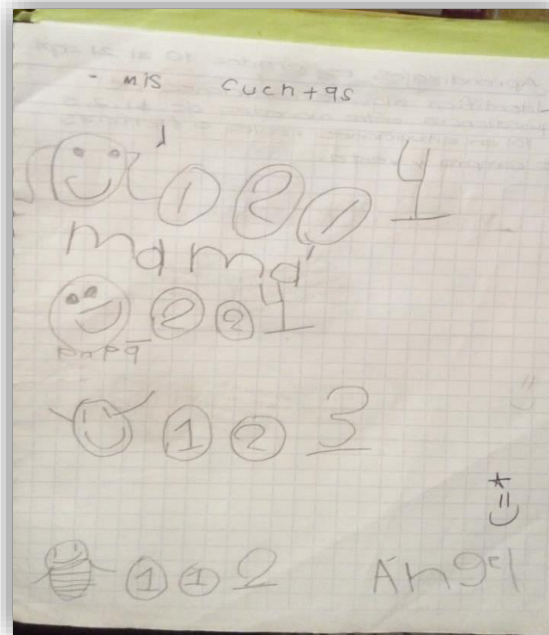 - mis cuentas
1 2 1 4
mamá
2 2 4
papá
1 2 3
1 1 2 Ángel